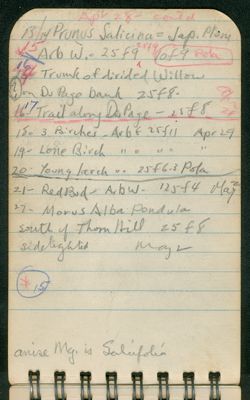 Apr 28 - contd
13/14 Prunus Salicina = Jap. Plum
Arb W. - 25 f9 of 9 Pola
Trunk of divided Willow
on Du Page bank 25 f8 -
16-17 Trail along DuPage - 25 f8
18 - 3 Birches - Arb E 25 f11 Apr 29
19 - Lone Birch " " " "
20 - Young Larch " " 25 f6.3 Pola
21 - RedBud - Arb W - 125 f4 May
22 - Morus Alba Pendula
south of Thorn Hill 25 f8
sidelighted May 2
* 15
anise Mg. is Salicifolia